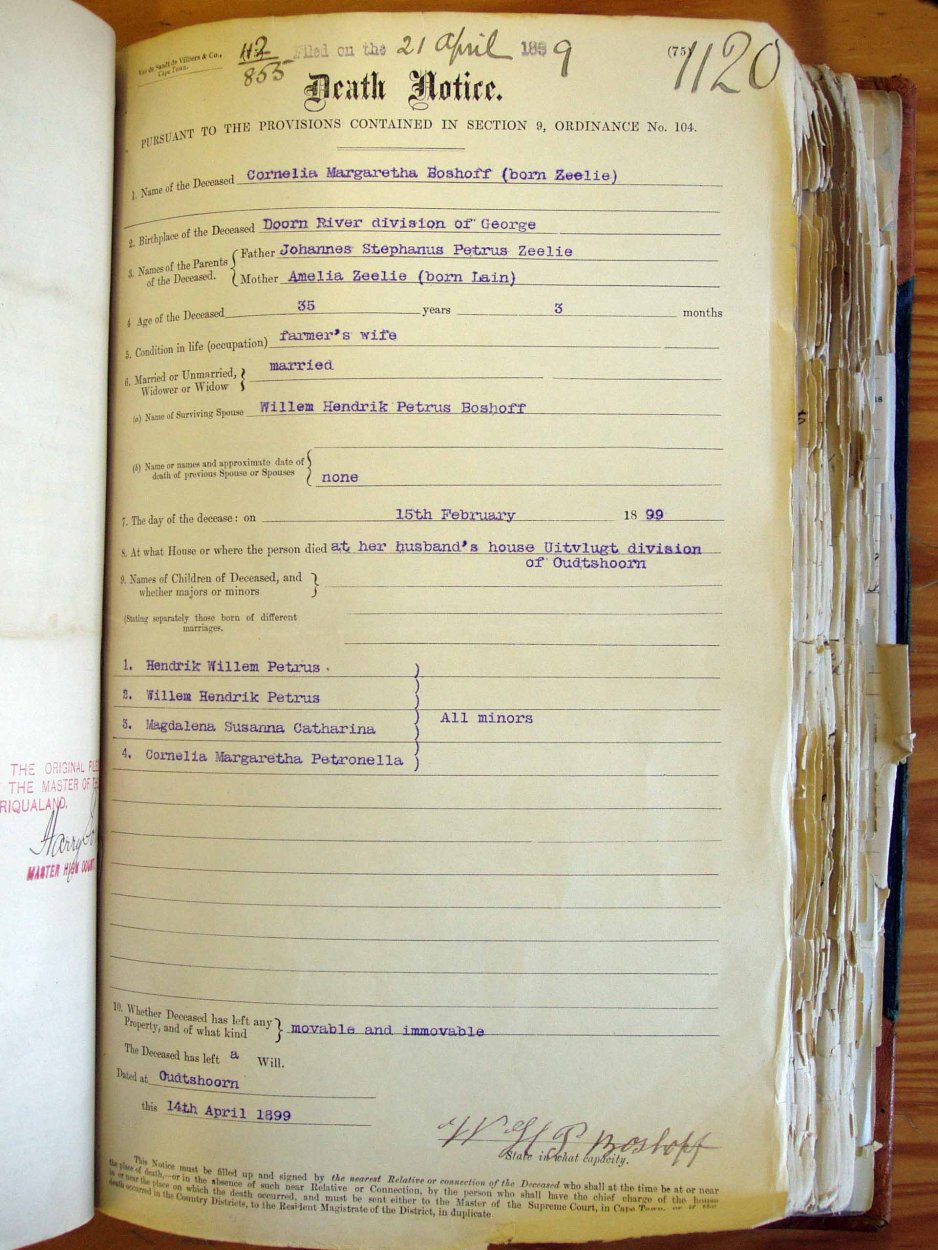 Van de Sandt de Villiers & Co.,
Cape Town.
Filed on the 21 April 1899
(75)
1120
855
Death Notice.
PURSUANT TO THE PROVISIONS CONTAINED IN SECTION 9, ORDINANCE No. 104.
1. Name of the Deceased Cornelia Margaretha Boshoff (born Zeelie)
2. Birthplace of the Deceased Doorn River division of George
3. Names of the Parents of the Deceased. { Father Johannes Stephanus Petrus Zeelie
Mother Amelia Zeelie (born Lain)
4 Age of the Deceased 35 years 3 months
5. Condition in life (occupation) farmer's wife
6. Married or Unmarried, Widower or Widow } married
(a) Name of Surviving Spouse Willem Hendrik Petrus Boshoff
(b) Name or names and approximate date of death of previous Spouse or Spouses { none
7. The day of the decease: on 15th February 18 99
8. At what House or where the person died at her husband's house Uitvlugt division
of Oudtshoorn
9. Names of Children of Deceased, and
whether majors or minors }
(Stating separately those born of different
marriages.
1. Hendrik Willem Petrus )
2. Willem Hendrik Petrus )
3. Magdalena Susanna Catharina ) All minors
4. Cornelia Margaretha Petronella )
10. Whether Deceased has left any
Property, and of what kind } movable and immovable
The Deceased has left a Will.
Dated at Oudtshoorn
this 14th April 1899
W H P Boshoff
State in what capacity.
This Notice must be filled up and signed by the nearest Relative or connection of the Deceased who shall at the time be at or near
the place of death,—or in the absence of such near Relative or Connection, by the person who shall have the chief charge of the house
in or near the place on which the death occurred, and must be sent either to the Master of the Supreme Court, in Cape Town, or if the
death occurred in the Country Districts, to the Resident Magistrate of the District, in duplicate.
THE ORIGINAL
THE MASTER OF
RIQUALAND,
Harry
MASTER HIGH COURT